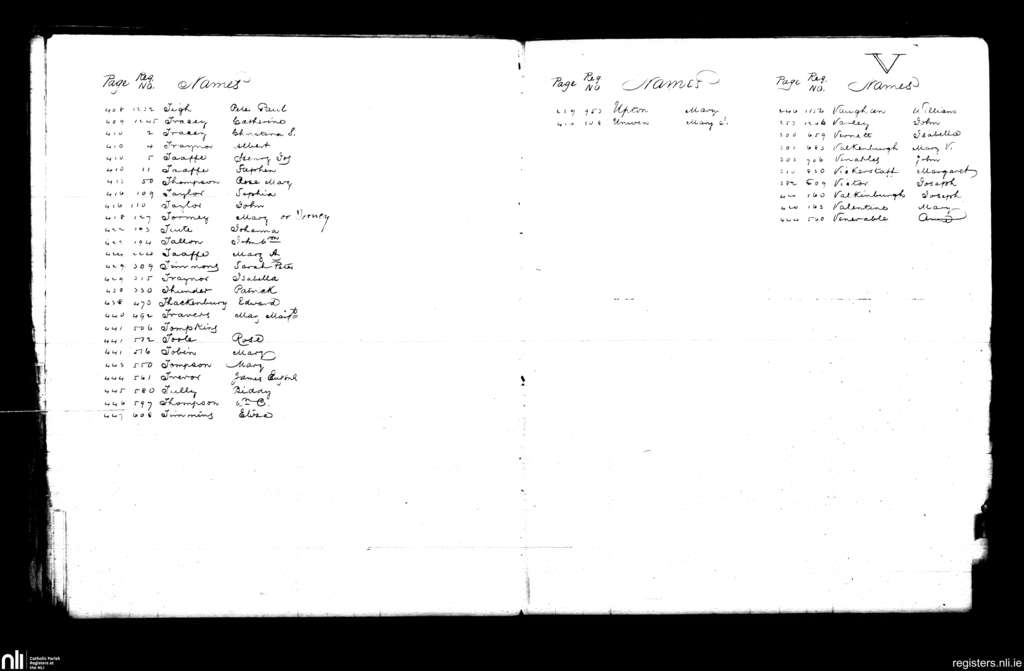 Page Reg. No. Names
408 1232 Tighe Peter Paul
409 1245 Tracey Catherine
410 2 Tracey Christana S.
410 4 Traynor Albert
410 5 Taaffe Henry Jos
410 11 Taaffe Stephen
413 50 Thompson Rose Mary
416 109 Taylor Sophia
416 110 Taylor John
418 127 Tormey Mary or
422 183 Tuite Johanna
423 194 Tallon John
Taaffe Mary A.
429 309 Timmons Sarah Peter
429 315 Traynor Isabella
430 330 Thunder Patrick
438 473 Thackenbury Edward
440 492 Travers May
441 506 Tompkins
441 512 Toole Rose
441 516 Tobin Mary
443 550 Tompson Mary
444 561 Trevor James Eugene
445 580 Tully Biddy
446 597 Thompson
447 608 Timmins Eliza
Page Reg No Names
239 953 Upton Mary
410 108 Unwin Mary
V
Page Reg. No. Names
Vaughan William
253 1206 Varley John
300 659 Vernett Isabella
301 683 Valkenburgh Mary V.
303 706 Venables John
310 830 Vickerstaff Margaret
382 609 Victor Joseph
420 160 Valkenburgh Joseph
420 163 Valentine Mary
444 560 Venerable
nli
Catholic Parish
Registers at
the NLI
registers.nli.ie